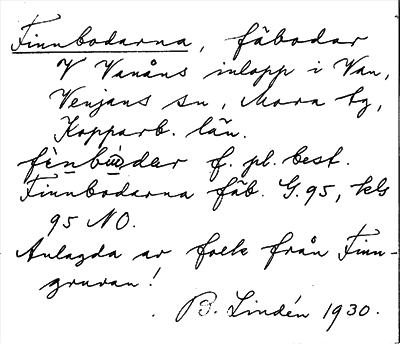 Finnbodarna, fäbodar
V Vanåns inlopp i Van,
Venjans sn, Mora tg,
Kopparb. län.
f. pl. best.
Finnbodarna fäb. G. 95, kls
95 NO.
Anlagda av folk från Finn-
gruvan!
B. Lindén 1930.